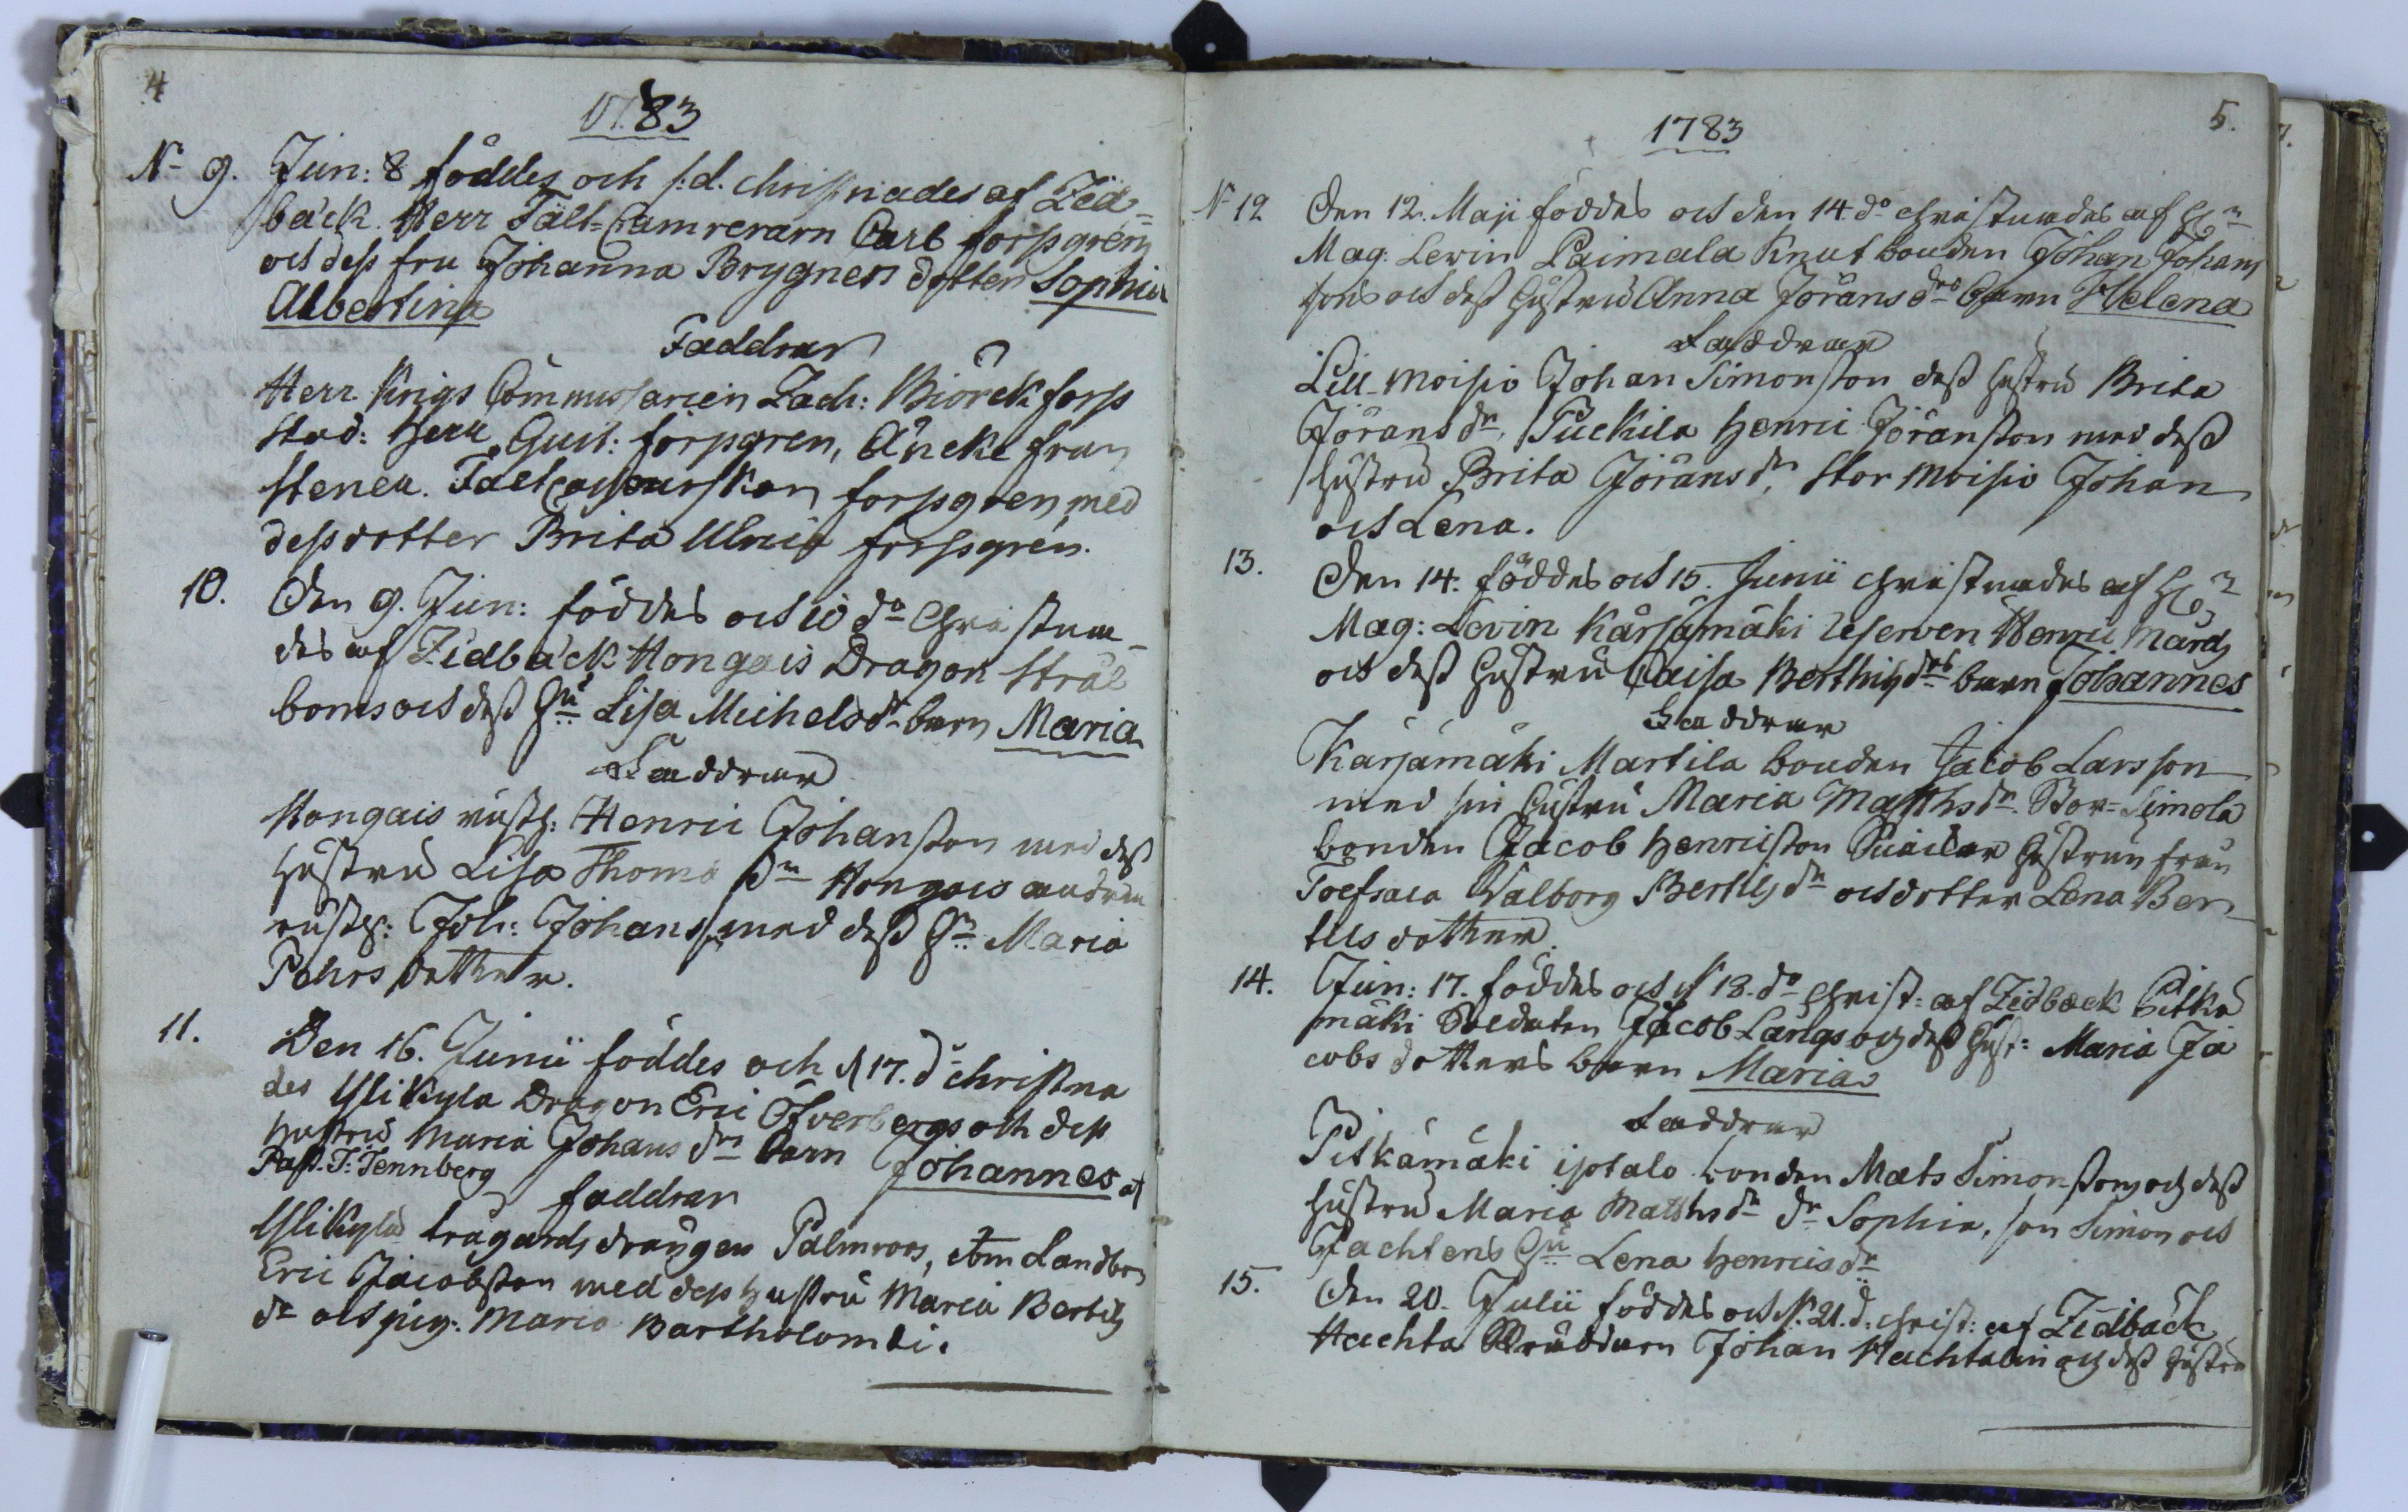 4
1783
N- 9. Jun: 8 föddes och s:d. christnades af Zid=
bäck. Herr Fält-Camreraren Carl forssgrén
och dess fru Johanna Brygners dotter Sophia
Albertina
Faddrar
Herr Krigs Commissarien Zach: Biörck forss
Stud: Herr Gust: forssgren, Äncke frun
Stenen. forssgren med
dess dotter Brita Ulrica forssgrén.
10. Den 9. Jun: föddes och 10 do Christna-
des af Zidbäck Hongais Dragon Strål
boms och dess Hu Lisa Michelsdr barn Maria
Faddrar
Hongais rusth: Henric Johansson med dess
hustru Lisa Thomæ dr Hongais andra
rusth: Joh: Johanss. med dess Hu Maria
Pehrs dotter.
11. Den 16. Junii föddes och d 17. do christna
des Ylikyla Dragon Eric Öfverbergs och dess
hustru Maria Johans drs barn Johannes af
Past. J: Tennberg
faddrar
Ylikyla trägårds drängen Palmroos, Landbon
Eric Jacobsson med dess hustru Maria Bertils
dr och pig: Maria Bartholomæi.
5.
1783
N 12 Den 12. Maji föddes och den 14 do christnades af Hr
Mag: Levin Paimala Knut bonden Johan Johans
sons och dess hustru Anna Jörans drs barn Helena
Faddrar
Lill-Moisio Johan Simonsson dess hustru Brita
Jörans dr, Puckila Henric Jöransson med dess
hustru Brita Jörans dr, Stor Moisio Johan
och Lena.
13. Den 14. föddes och 15. Junii christnades af Hr
Mag: Levin Kärsämäki reserven Henric Mårds
och dess hustru Caisa Berthils drs barn Johannes
Faddrar
Kärsämäki Martila bonden Jacob Larsson
med sin hustru Maria Matths dr. Stor-Simola
bonden Jacob Henricsson hustrun från
Valborg Bertils dr och dotter Lena Ber-
tils dotter.
14. Jun: 17. föddes och d 18. do christ: af Zidbäck Pitkä
mäki Soldaten Jacob Längs och dess hust: Maria Ja
cobs dotters barn Maria
Faddrar
Pitkämäki isotalo bonden Mats Simonsson och dess
hustru Maria Matths dr dr Sophia, son Simon och
Jachtens Hu Lena Henrics dr
15. Den 20. Julii föddes och d. 21. d. christ: af Zidbäck
Hachta Johan Hachtalin och dess hustru